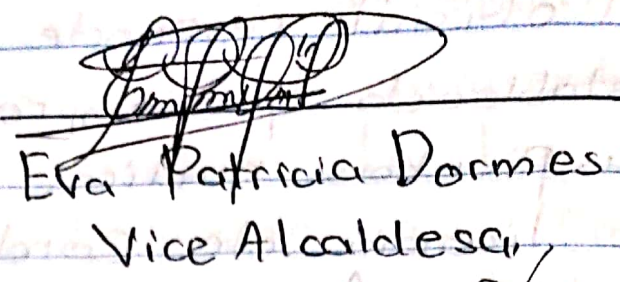 Eva Patricia Dormes
Vice Alcaldesa,